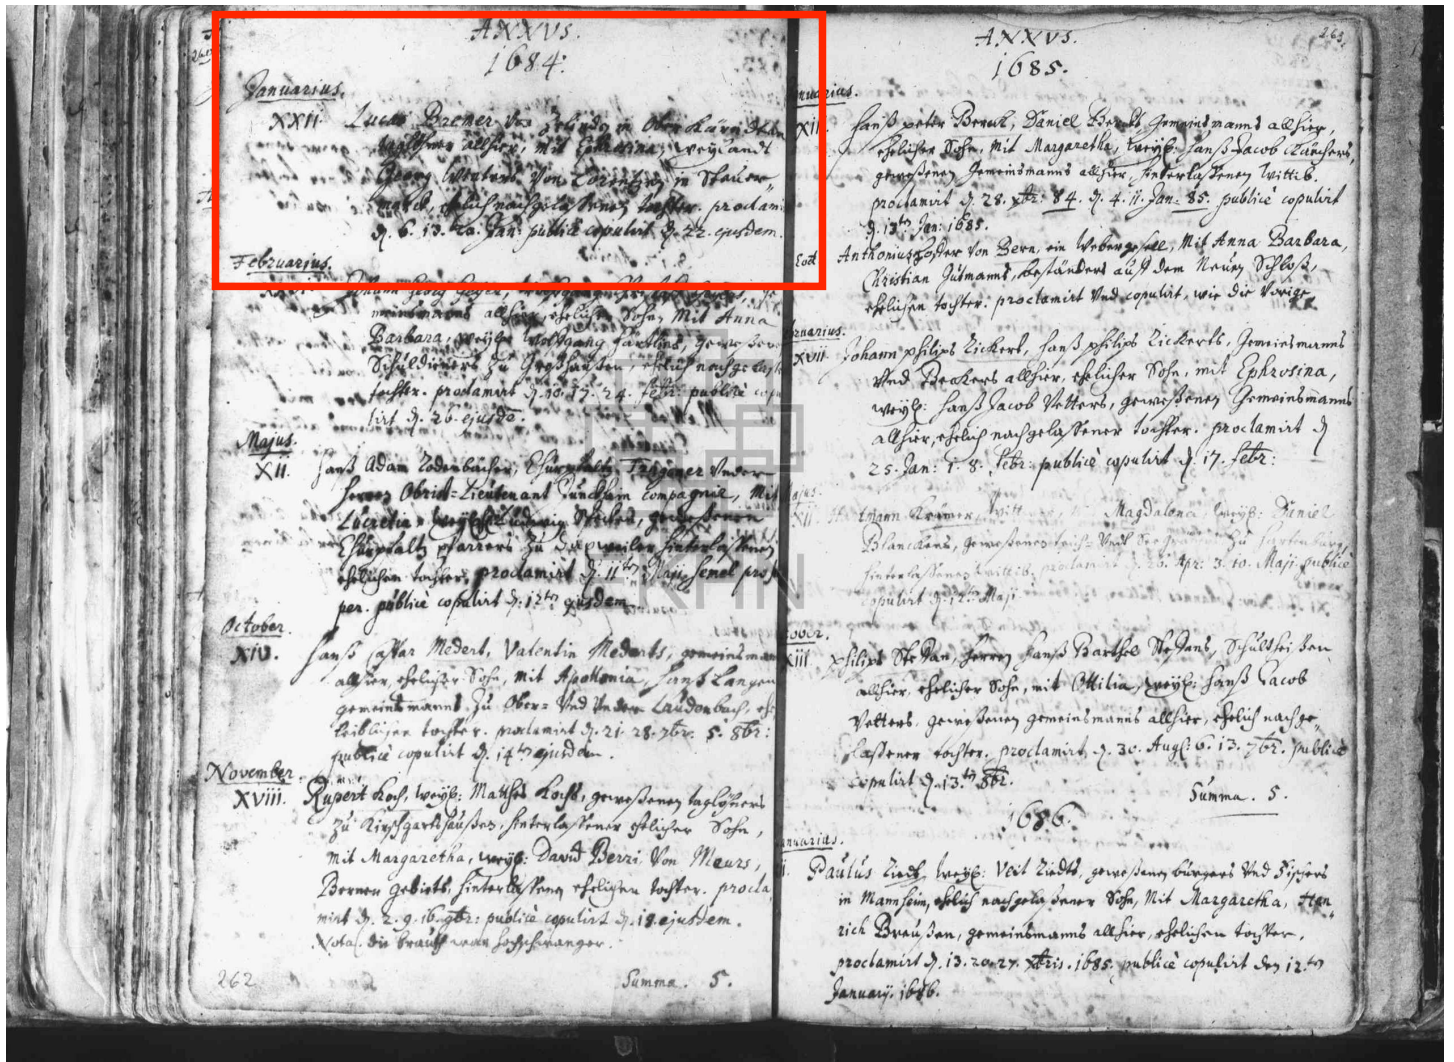 ANNUS.
1684.
Januarius.
XXII Lucas Bremer von in Ober
taglöhner allhier, mit Euphrosina, weylandt
Georg von in Steuer=
marck, ehelich nachgelaßenen tochter. proclam
d. 6. 13. 20. Jan: publicè copulirt d. 22. ejusdem.
Februarius.
Johann Georg
meinsmanns allhier, ehelichen Sohn, Mit Anna
Barbara, weyl: Wolfgang geweße
Schuldieners zu Großhaußen, ehelich nachgelaß
tochter. proclamirt d. 10. 17. 24. febr: publicè copu
lirt d. 26. ejusdē.
Majus.
XII. Hanß Adam Chürpfaltz. Dragoner Under
Herren Obrist=Lieutenant compagnie, Mit
Lucretia, weyl: Ludwig gewesenen
Chürpfaltz pfarrers zu hinterlaßenen
ehelichen tochter, proclamirt d. 11ten Maji, semel pro
per. publicè copulirt d. 12ten ejusdem.
October.
XIV. Hanß Caspar Medert, Valentin Mederts, gemeinsman
allhier, ehelicher Sohn, mit Apollonia, Langen
gemeinsmanns zu Ober= Und Under Laudenbach, ehe
leiblichen tochter. proclamirt d. 21. 28. 7br. 5. 8br:
publicè copulirt d. 14ten ejusdem.
November.
XVIII. Rupert Koch, weyl: Matthes Kochs, geweßenen taglöhners
zu Kirschgartshaußen, hinterlaßener ehelicher Sohn,
mit Margaretha, weyl: David Berri Von Meurs,
Berner gebiets, hinterlaßenen ehelichen tochter. procla
mirt d. 2. 9. 16. 9br: publicè copulirt d. 18. ejusdem.
Nota. die brauth war hochschwanger.
262 Summa. 5.
ANNUS. 263
1685.
nuarius.
XII. Hanß peter Berck, Daniel Gemeinsmanns allhier,
ehelicher Sohn, mit Margaretha, weyl: Hanß Jacob
geweßenen Gemeinsmanns allhier, hinterlaßenen Wittib.
proclamirt d. 28. xbr: 84. d. 4. 11. Jan: 85. publicè copulirt
d. 13ten Jan: 1685.
Eod Anthonius von Bern, ein Webergesell, Mit Anna Barbara,
Christian Gutmanns, beständers auff dem Neuen Schloß,
ehelichen tochter. proclamirt Und copulirt, wie die Vorige
bruarius.
XVII Johann philips Zickert, Hanß philips Zickerts, Gemeinsmanns
Und Beckers allhier, ehelicher Sohn, mit Ephrosina,
weyl: Hanß Jacob Vetters, geweßenen Gemeinsmanns
allhier, ehelich nachgelaßener tochter. proclamirt d
25. Jan: 1. 8. febr: publicè copulirt d. 17. febr:
ajus.
XII. Krämer, Witt Magdalena, weyl: Daniel
Blanckers, geweßenen
hinterlaßenen wittib. proclamirt d. 26. Apr: 3. 10. Maji. publicè
copulirt d. 12ten Maji.
tober.
XIII philips Stephan, Herren Hanß Barthel Stephans, Schultheißen
allhier, ehelicher Sohn, mit Ottilia, weyl: Hanß Jacob
Vetters, geweßenen gemeinsmanns allhier, ehelich nachge=
laßener tochter, proclamirt d. 30. Aug: 6. 13. 7br. publicè
copulirt d. 13ten 8br.
Summa. 5.
1686.
anuarius.
Paulus weyl: Veit geweßenen bürgers Und Fischers
in Mannheim, ehelich nachgelaßener Sohn, Mit Margaretha, Hen=
rich Breußen, gemeinsmanns allhier, ehelichen tochter,
proclamirt d. 13. 20. 27. xbris. 1685. publicè copulirt den 12ten
January. 1686.
EKHN